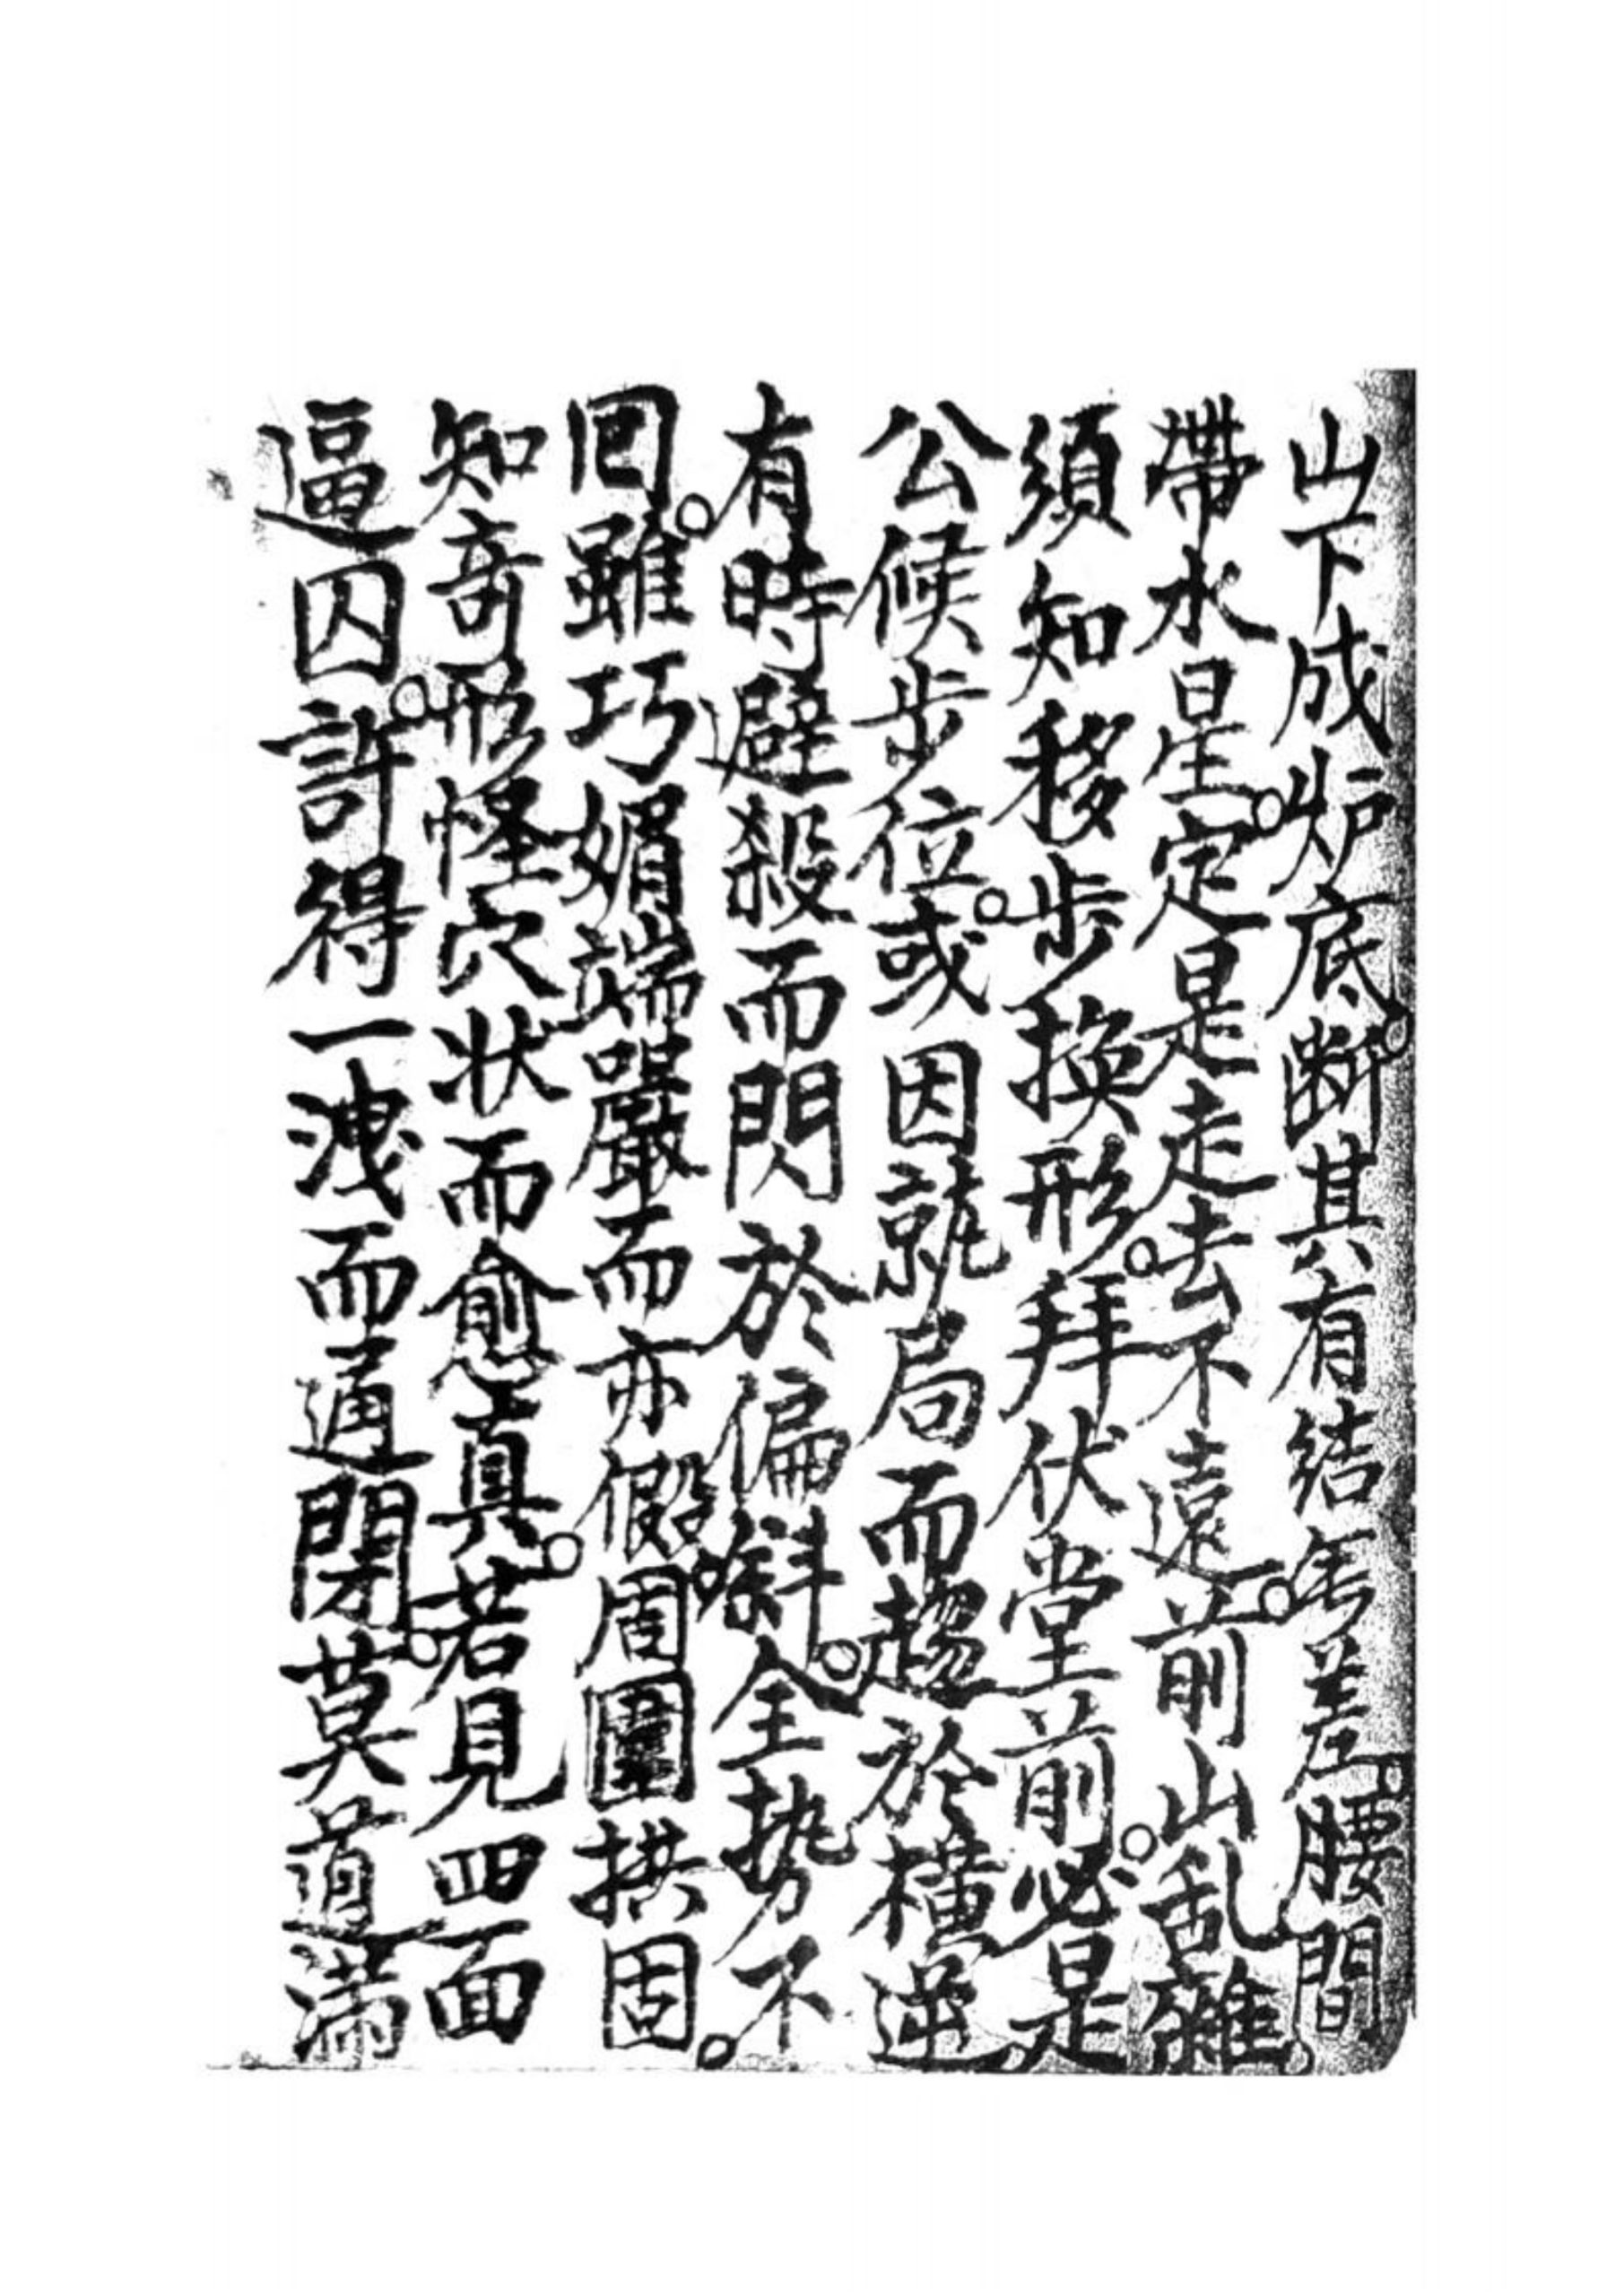 山下成炉底。断其有结無差。腰間。
帶水星。定是走去不遠。前山乱雜。
須知移步換形。拜伏堂前。必是
公候步位。或因就局而趨於橫逆。
有時避殺而閃於偏斜。全势不
囘。雖巧媚端嚴而亦假。周圍拱固。
知奇形怪穴状而愈真。若見四面
逼囚。許得一洩而通閉。莫道滿